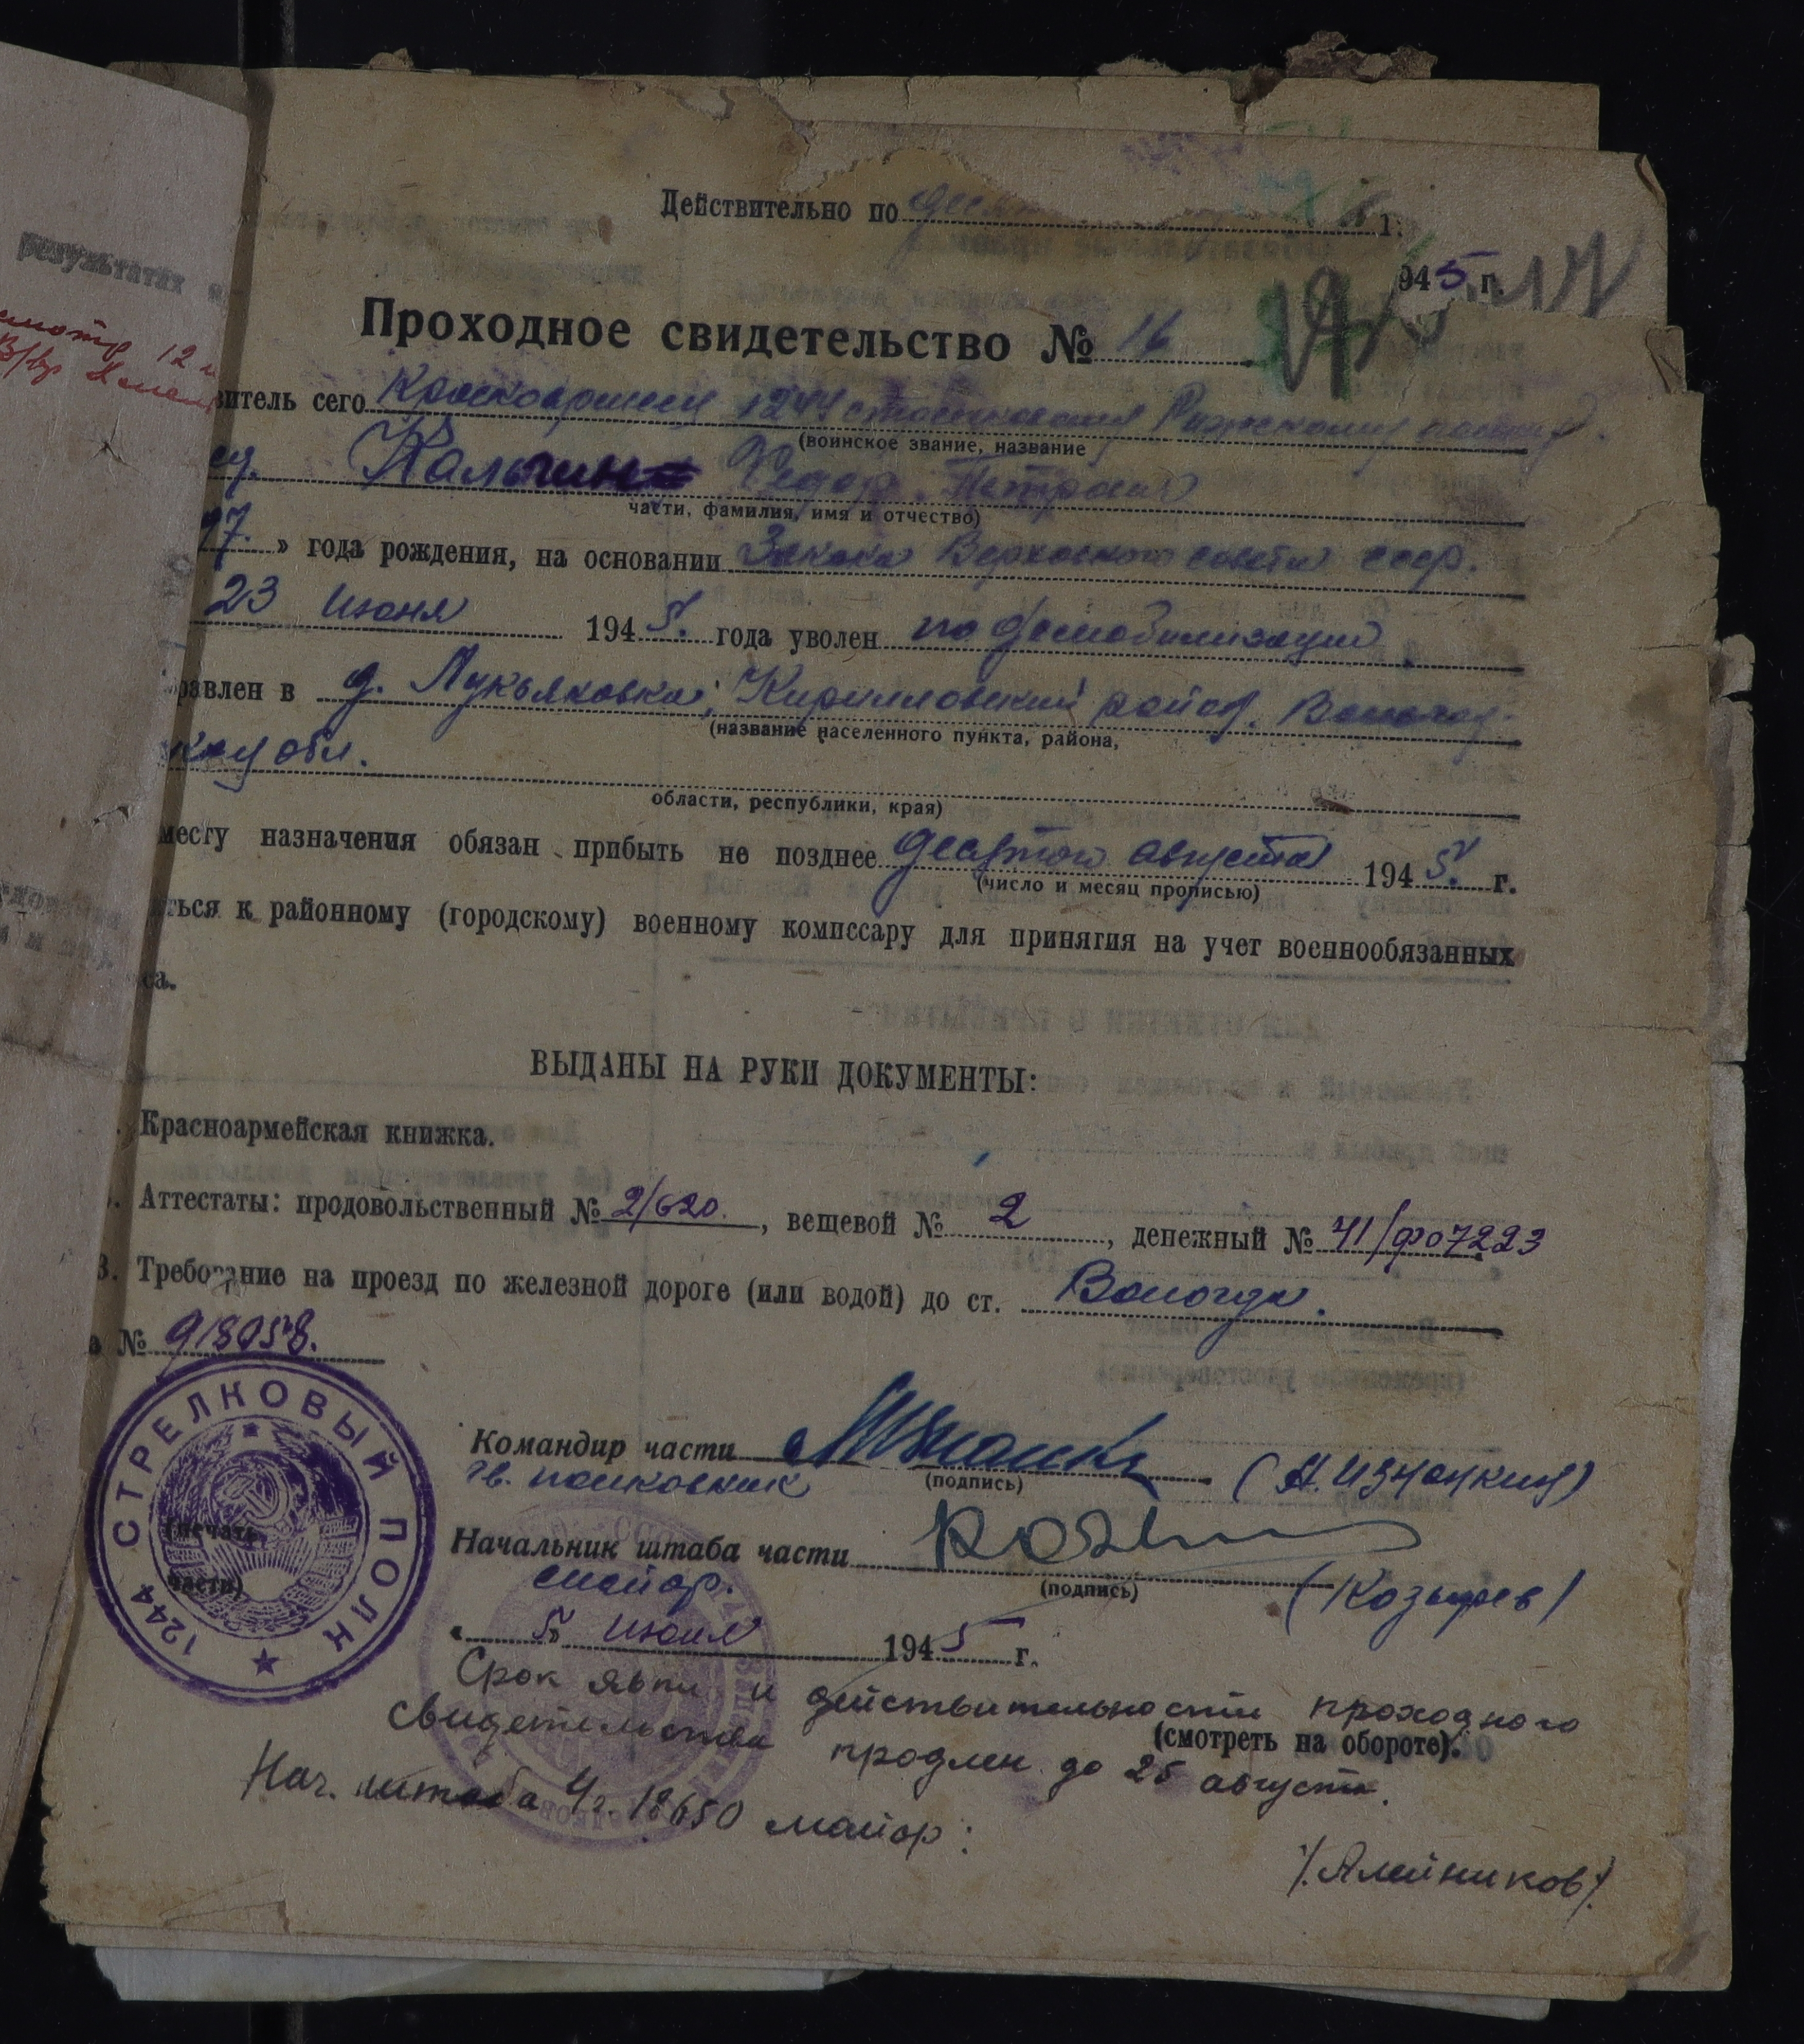 результатах
Действительно по
1.
945 г.
Проходное свидетельство № 16
витель сего Красноармеец 1244 стрелкового Рижского полка
(воинское звание, название
Кальчин Федор Петрович
части, фамилия, имя и отчество)
97. » года рождения, на основании Закона Верховного совета ссср.
23 июня 1945. года уволен по демобилизации
равлен в д. Лукьяновка, Кирилловский район. Вологод-
ской обл.
(название населенного пункта, района,
области, республики, края)
месту назначения обязан прибыть не позднее десятого августа 1945. г.
(число и месяц прописью)
ться к районному (городскому) военному комиссару для принятия на учет военнообязанных
са.
ВЫДАНЫ НА РУКИ ДОКУМЕНТЫ:
Красноармейская книжка.
Аттестаты: продовольственный № 2/620., вещевой № 2, денежный № 41/фо7223
3. Требование на проезд по железной дороге (или водой) до ст. Вологда.
№ 918058.
1244 СТРЕЛКОВЫЙ ПОЛК
(печать
части)
Командир части
гв. полковник
(подпись)
Начальник штаба части
майор.
(подпись)
(Козырев)
« 5 » июля 1945 г.
Срок явки и действительности проходного
свидетельства продлен до 25 августа.
(смотреть на обороте).
Нач. штаба ч. 18650 майор:
/Алейников/